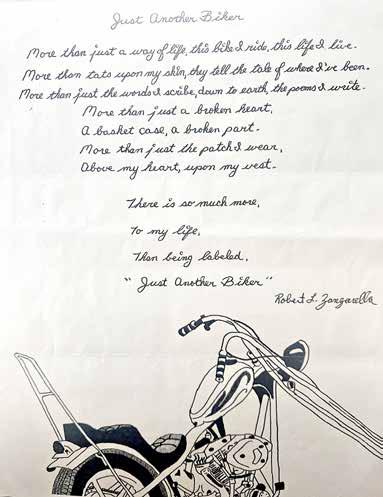 Just Another Biker
More than just a way of life, this bike I ride, this life I live.
More than tats upon my skin, they tell the tale of where I've been.
More than just the words I scribe, down to earth, the poems I write.
More than just a broken heart,
A basket case, a broken part.
More than just the patch I wear,
Above my heart, upon my vest.
There is so much more,
To my life,
Than being labeled,
"Just Another Biker"
Robert L. Zangarella